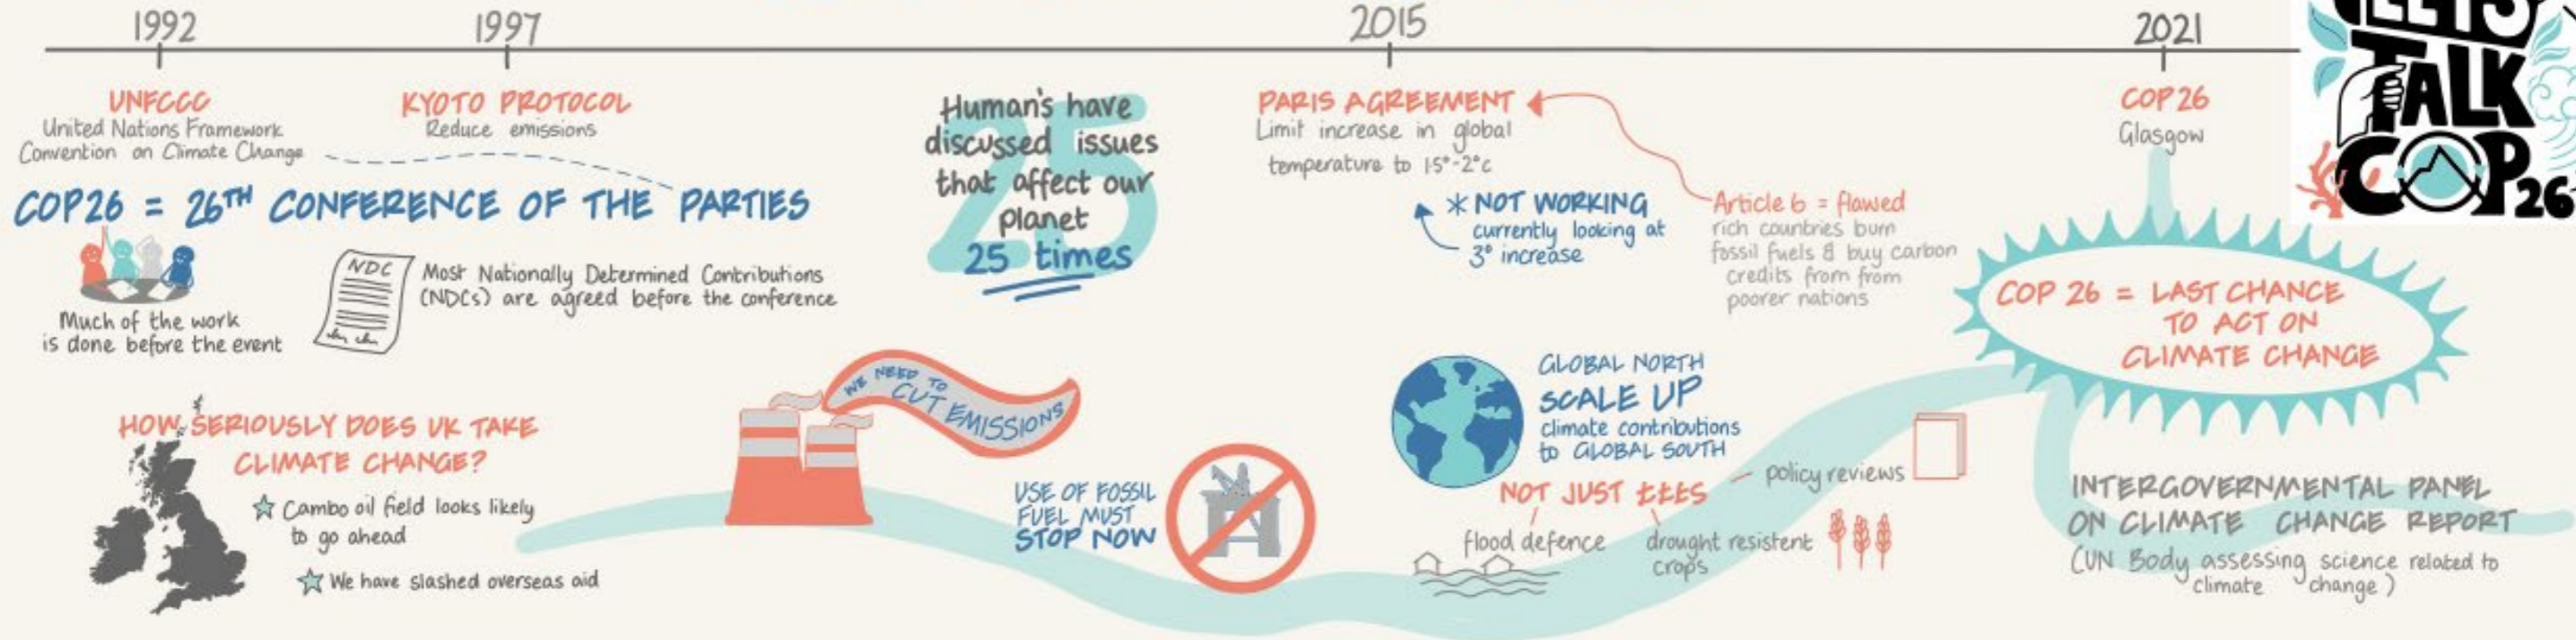 1992
1997
2015
2021
UNFCCC
United Nations Framework
Convention on Climate Change
KYOTO PROTOCOL
Reduce emissions
COP26 = 26TH CONFERENCE OF THE PARTIES
Much of the work
is done before the event
NDC
Most Nationally Determined Contributions
(NDCs) are agreed before the conference
25
Human's have
discussed issues
that affect our
planet
25 times
PARIS AGREEMENT
Limit increase in global
temperature to 1.5°-2°c
* NOT WORKING
currently looking at
3° increase
Article 6 = flawed
rich countries burn
fossil fuels & buy carbon
credits from from
poorer nations
COP26
Glasgow
LET'S
TALK
COP26
COP 26 = LAST CHANCE
TO ACT ON
CLIMATE CHANGE
HOW SERIOUSLY DOES UK TAKE
CLIMATE CHANGE?
Cambo oil field looks likely
to go ahead
We have slashed overseas aid
WE NEED TO
CUT EMISSIONS
USE OF FOSSIL
FUEL MUST
STOP NOW
GLOBAL NORTH
SCALE UP
climate contributions
to GLOBAL SOUTH
NOT JUST £££s
policy reviews
flood defence
drought resistent
crops
INTERGOVERNMENTAL PANEL
ON CLIMATE CHANGE REPORT
(UN Body assessing science related to
climate change)